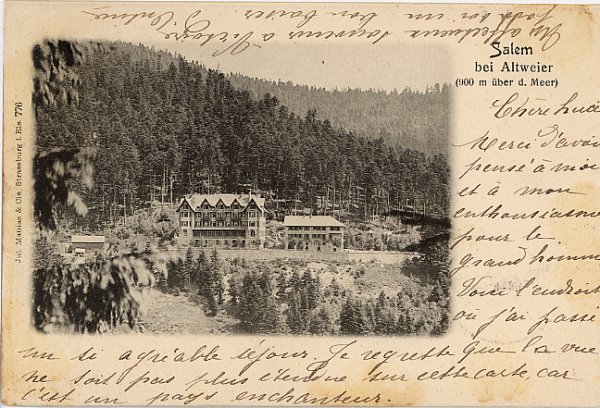 Salem
bei Altweier
(900 m über d. Meer)
Jul. Manias & Cie. Strassburg i. Els. 776
Chère
Merci d'avoir
pensé à moi
et à mon
enthousiasme
pour le
grand homme
Voici l'endroit
où j'ai passé
un si agréable séjour. Je regrette que la vue
ne soit pas plus étendue sur cette carte, car
c'est un pays enchanteur.
affectueux souvenirs à
bon baiser